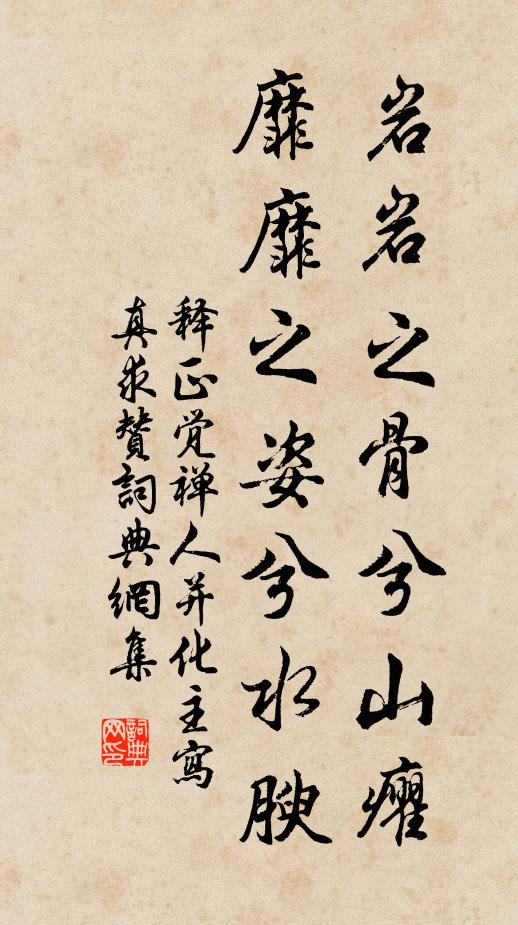 岩岩之骨兮山癯
靡靡之姿兮水腴
释正觉禅人并化主寫
真求贊詞典網集
詞典網印